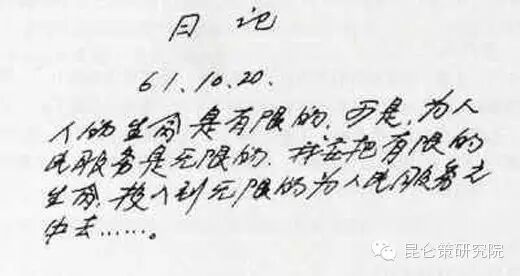 日记
61.10.20.
人的生命是有限的，可是，为人
民服务是无限的，我要把有限的
生命，投入到无限的为人民服务之
中去……。
昆仑策研究院